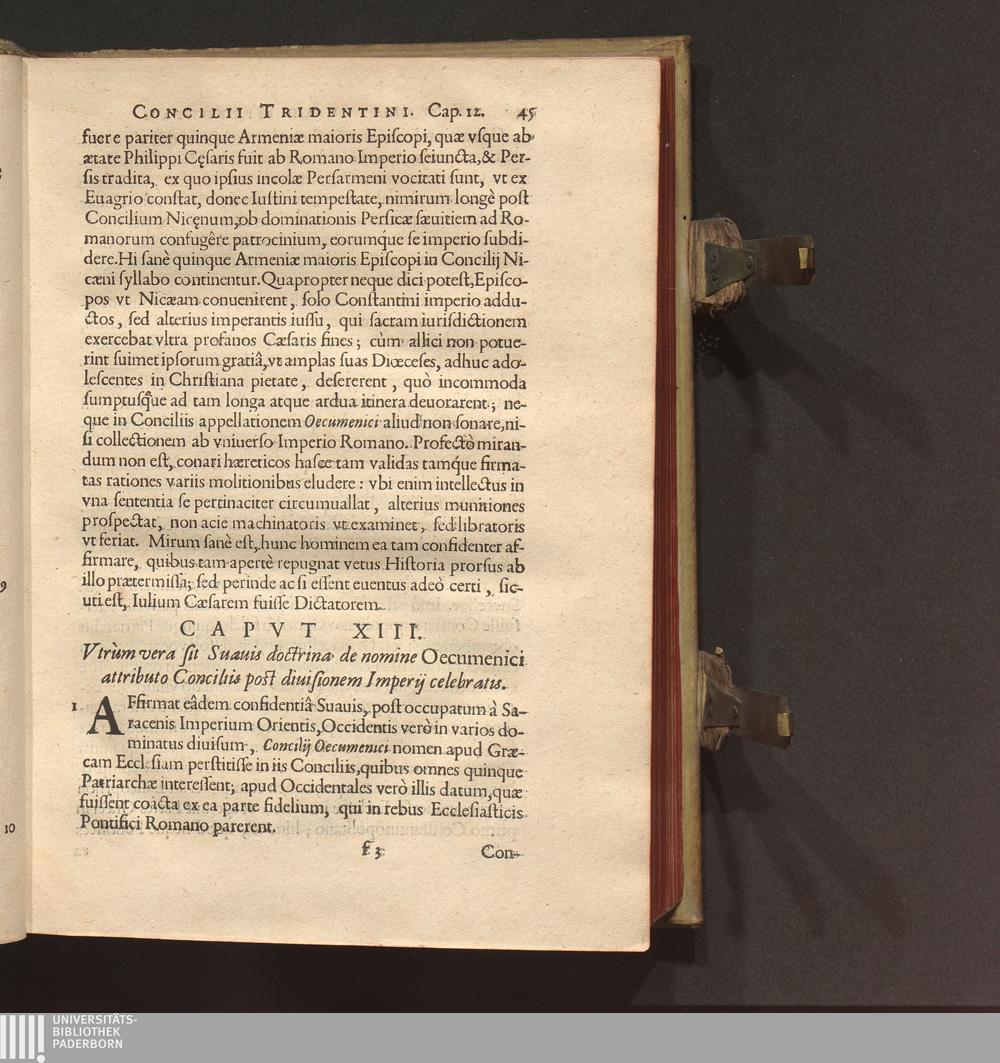 CONCILII TRIDENTINI. Cap. 12. 45
fuere pariter quinque Armeniæ maioris Epiſcopi, quæ vſque ab
ætate Philippi Cęſaris fuit ab Romano Imperio ſeiuncta, & Per-
ſis tradita, ex quo ipſius incolæ Perſarmeni vocitati ſunt, vt ex
Euagrio conſtat, donec Iuſtini tempeſtate, nimirum longè poſt
Concilium Nicęnum, ob dominationis Perſicæ ſæuitiem ad Ro-
manorum confugêre patrocinium, eorumq́ue ſe imperio ſubdi-
dere. Hi ſanè quinque Armeniæ maioris Epiſcopi in Concilij Ni-
cæni ſyllabo continentur. Quapropter neque dici poteſt, Epiſco-
pos vt Nicæam conuenirent, ſolo Conſtantini imperio addu-
ctos, ſed alterius imperantis iuſſu, qui ſacram iuriſdictionem
exercebat vltra profanos Cæſaris fines; cùm allici non potue-
rint ſuimet ipſorum gratiâ, vt amplas ſuas Diœceſes, adhuc ado-
leſcentes in Chriſtiana pietate, deſererent, quò incommoda
ſumptuſq́ue ad tam longa atque ardua itinera deuorarent; ne-
que in Conciliis appellationem Oecumenici aliud non ſonare, ni-
ſi collectionem ab vniuerſo Imperio Romano. Profectò miran-
dum non eſt, conari hæreticos haſce tam validas tamq́ue firma-
tas rationes variis molitionibus eludere: vbi enim intellectus in
vna ſententia ſe pertinaciter circumuallat, alterius munitiones
proſpectat, non acie machinatoris vt examinet, ſed libratoris
vt feriat. Mirum ſanè eſt, hunc hominem ea tam confidenter af-
firmare, quibus tam apertè repugnat vetus Hiſtoria prorſus ab
illo prætermiſſa; ſed perinde ac ſi eſſent euentus adeò certi, ſic-
uti eſt, Iulium Cæſarem fuiſſe Dictatorem.
CAPVT XIII.
Vtrùm vera ſit Suauis doctrina de nomine Oecumenici
attributo Conciliis poſt diuiſionem Imperij celebratis.
1 AFfirmat eâdem confidentiâ Suauis, poſt occupatum à Sa-
racenis Imperium Orientis, Occidentis verò in varios do-
minatus diuiſum, Concilij Oecumenici nomen apud Græ-
cam Eccleſiam perſtitiſſe in iis Conciliis, quibus omnes quinque
Patriarchæ intereſſent; apud Occidentales verò illis datum, quæ
fuiſſent coacta ex ea parte fidelium, qui in rebus Eccleſiaſticis
Pontifici Romano parerent.
f 3 Con-
9
10
UNIVERSITÄTS-
BIBLIOTHEK
PADERBORN